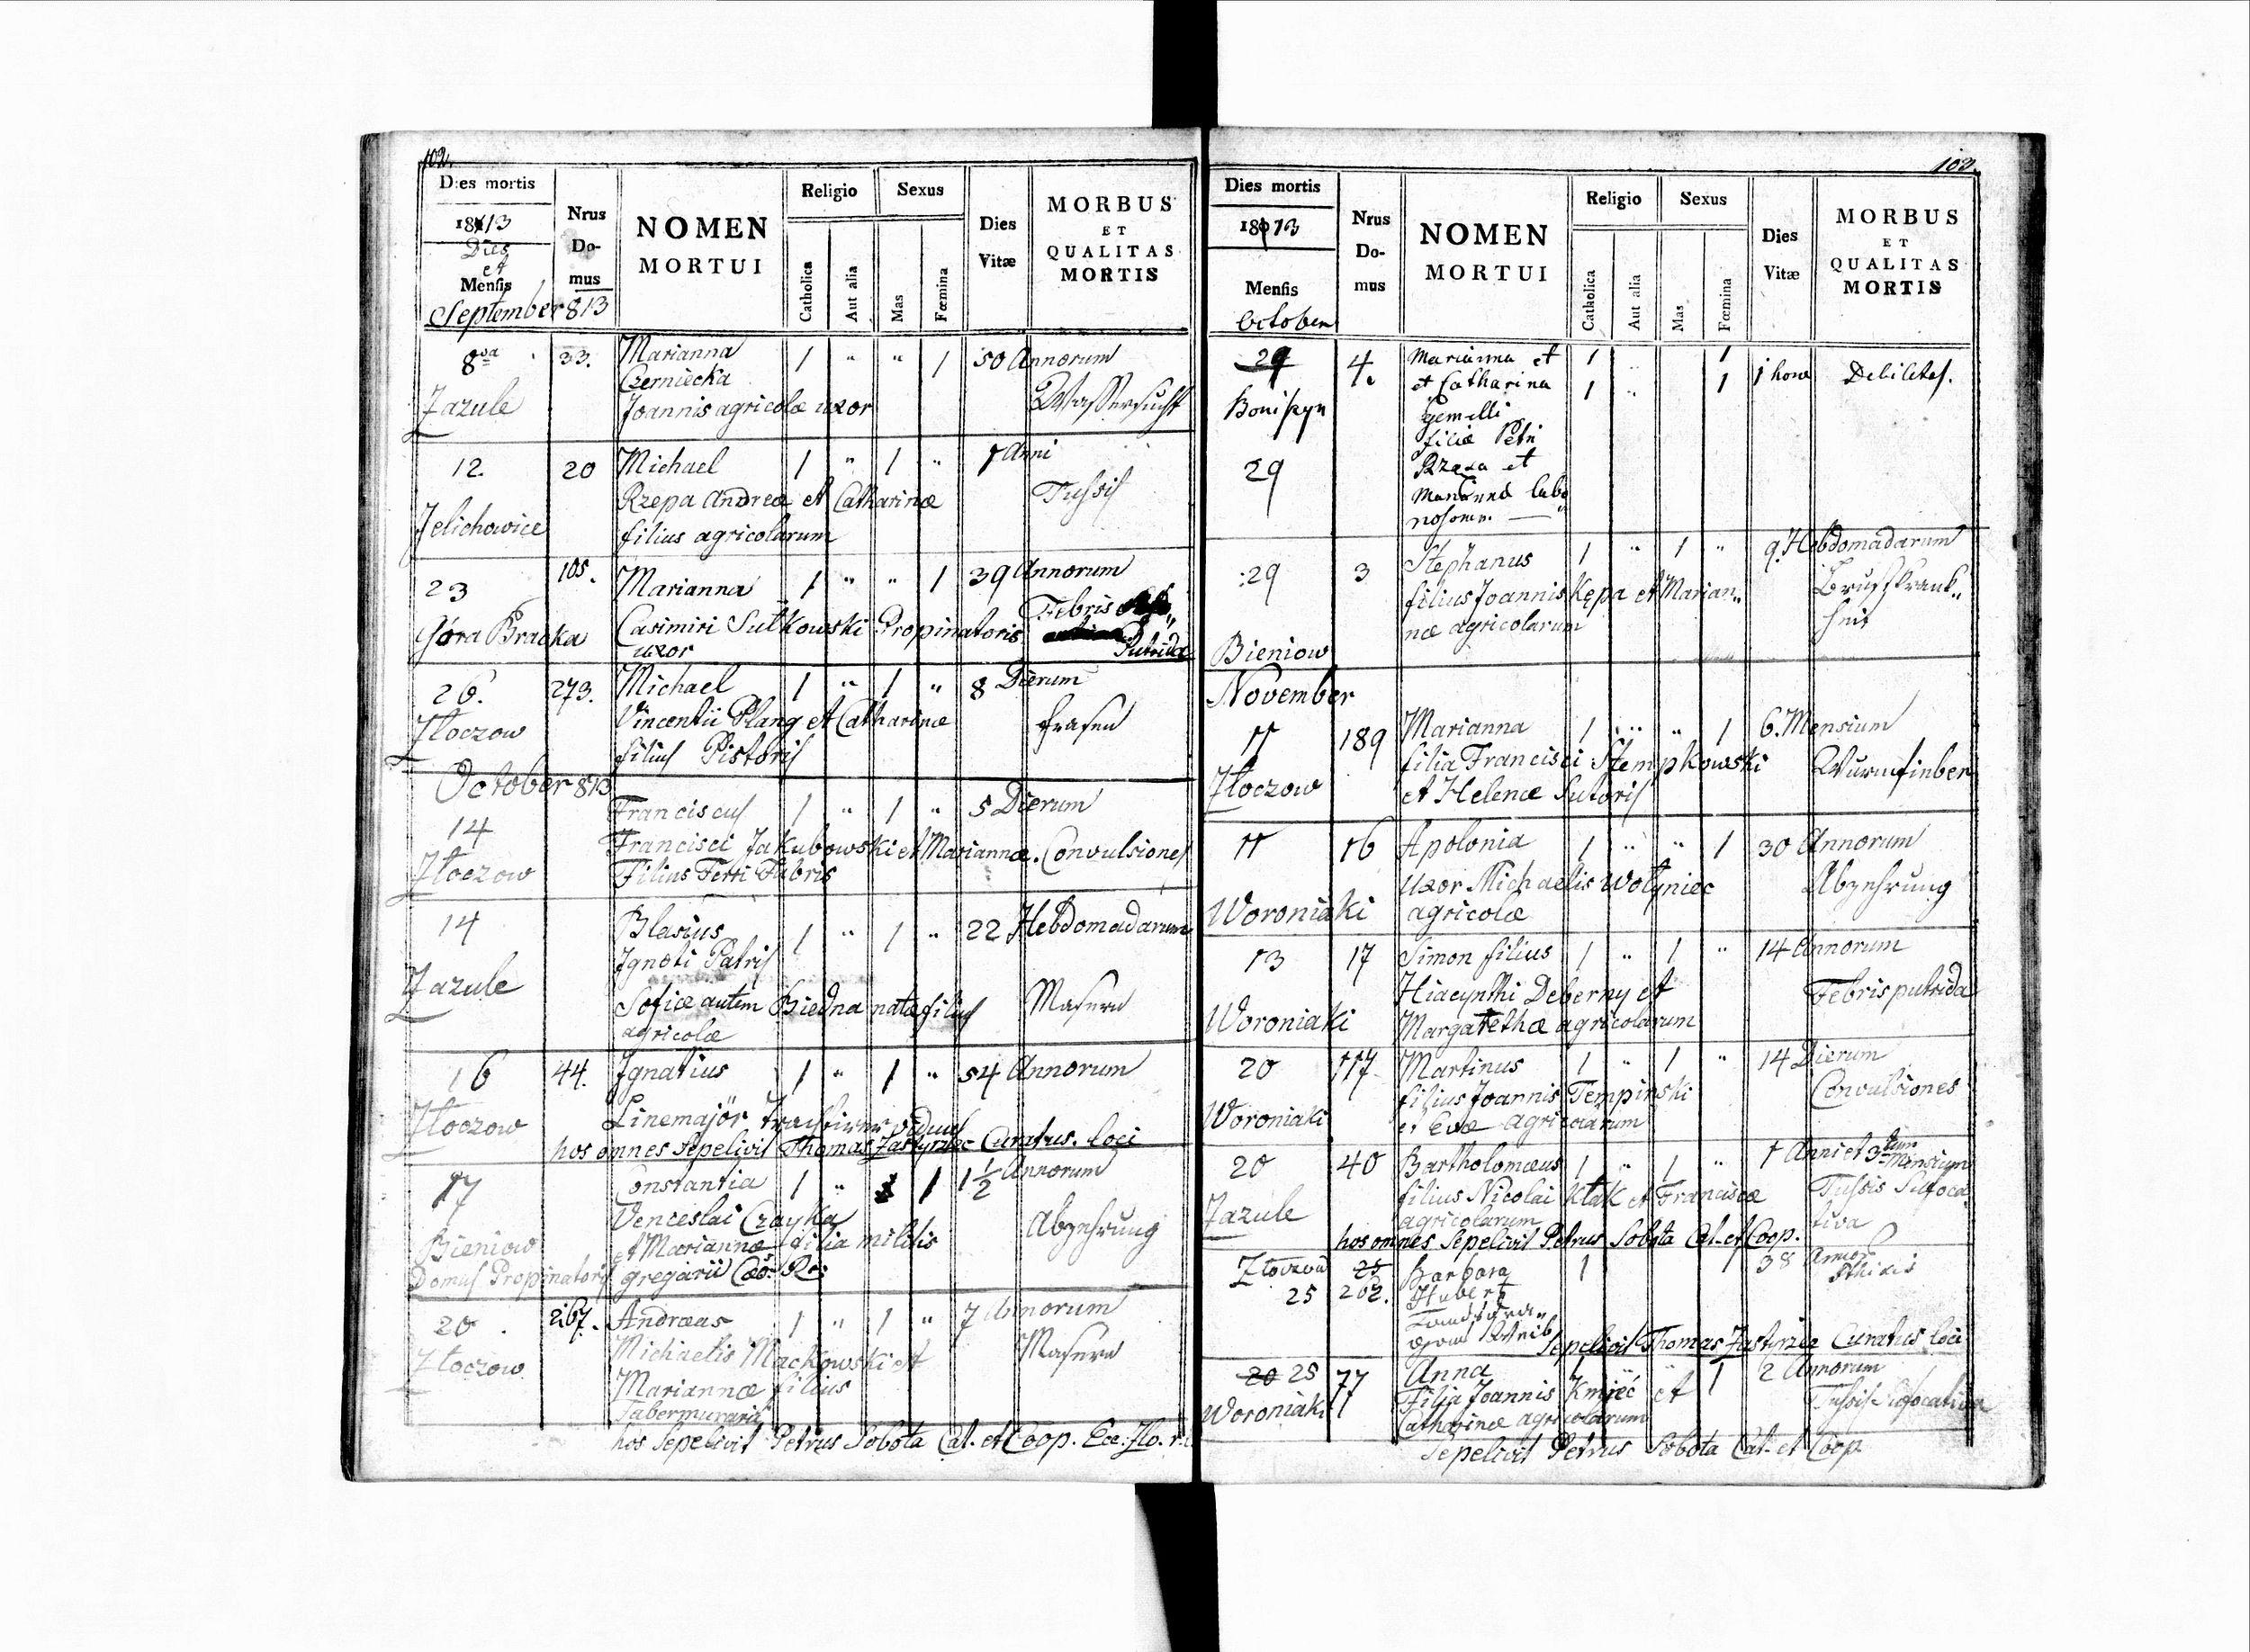 102.
Dies mortis
1813
Dies
et
Mensis
September 813
Nrus
Do-
mus
NOMEN
MORTUI
Religio
Catholica
Aut alia
Sexus
Mas
Fœmina
Dies
Vitæ
MORBUS
ET
QUALITAS
MORTIS
8va 33. Marianna 1 " " 1 50 Annorum
Czerniecka
Zazule Joannis agricolæ uxor Wassersucht
12. 20 Michael 1 " 1 " 1 Anni
Rzepa Andreæ et Catharinæ Tussis
Jelichowice filius agricolarum
23 105. Marianna 1 " " 1 39 Annorum
Góra Bracka Casimiri Sułkowski Propinatoris Febris
uxor Putrida
26. 273. Michael 1 " 1 " 8 Dierum
Złoczow Vincentii Plang et Catharinæ Frasen
filius Pistoris
October 813
14 Franciscus 1 " 1 " 5 Dierum
Francisci Jakubowski et Mariannæ. Convulsiones
Złoczow Filius Ferri Fabris
14 Blasius 1 " 1 " 22 Hebdomadarum
Ignoti Patris
Zazule Sofiæ autem Biedna natæ filius Masern
agricolæ
16 44. Ignatius 1 " 1 " 54 Annorum
Złoczow Linemajör viduus
hos omnes Sepelivit Thomas Zastyrzec Curatus. loci
17 Constantia 1 " 1 1 1/2 Annorum
Venceslai Czayka
Bieniow et Mariannæ filia militis Abzehrung
Domus Propinatoris gregarii
20. 267. Andræas 1 " 1 " 7 Annorum
Złoczow Michaelis Mackowski et Masern
Mariannæ filius
Fabermurarii
hos Sepelivit Petrus Sobota Cat. et Coop. Ecc: Zło. r.l.
102.
Dies mortis
1813
Mensis
October
Nrus
Do-
mus
NOMEN
MORTUI
Religio
Catholica
Aut alia
Sexus
Mas
Fœmina
Dies
Vitæ
MORBUS
ET
QUALITAS
MORTIS
29 4. Marianna et 1 " 1
et Catharina 1 " 1 1 hora Debilitas.
Boniszyn Gemelli
filiæ Petri
29 Rzepa et
Marianna
29 3 Stephanus 1 " 1 " 9 Hebdomadarum
filius Joannis Kępa et Marian„ Brustkrank„
næ agricolarum heit
Bieniow
November
11 189 Marianna 1 " " 1 6. Mensium
filia Francisci Stempkowski Wurmfieber
Złoczow et Helenæ Sutoris
11 16 Apolonia 1 " " 1 30 Annorum
uxor Michaelis Wołyniec Abzehrung
Woroniaki agricolæ
13 17 Simon filius 1 " 1 " 14 Annorum
Hiacynthi Deberny et Febris putrida
Woroniaki Margarethæ agricolarum
20 117 Martinus 1 " 1 " 14 Dierum
filius Joannis Tempinski Convulsiones
Woroniaki et Evæ agricolarum
20 40 Bartholomæus 1 " 1 " 1 Anni et 3um Mensium
filius Nicolai Ktak et Franciscæ Tussis Sufoca
Zazule agricolarum tiva
hos omnes Sepelivit Petrus Sobota Cat. et Coop.
25 Barbara 1 1 38 Annor
25 202. Hubert Pthisis
Sepelivit Thomas Zastyrzec Curatus loci
20 25 77 Anna 1 " " 1 2 Annorum
Woroniaki Filia Joannis Kmieć et Tussis Sufocativa
Catharinæ agricolarum
Sepelivit Petrus Sobota Cat. et Coop.